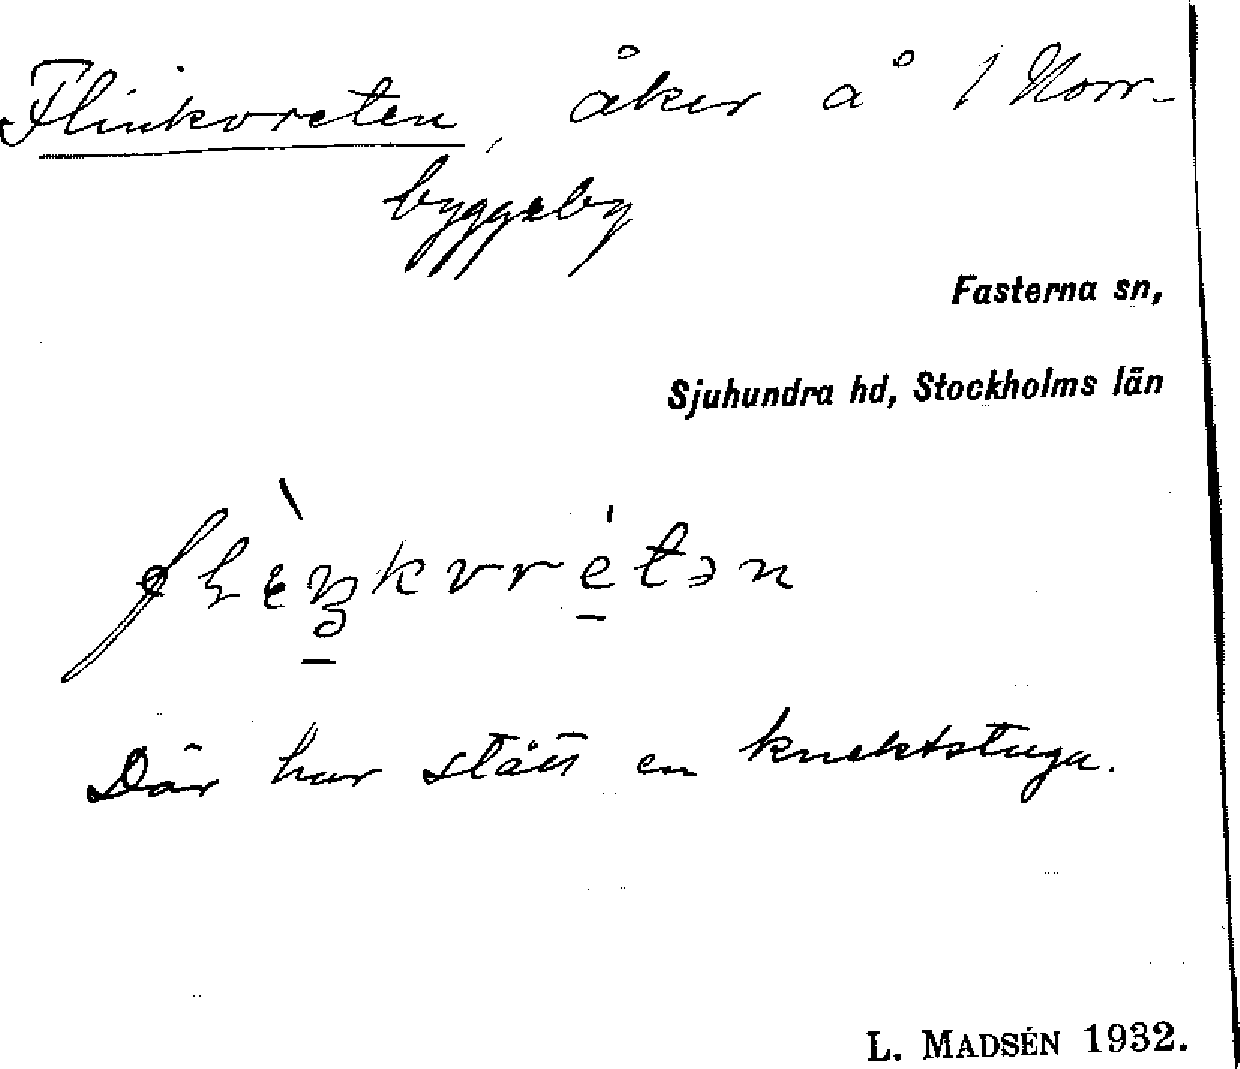 Flinkvreten, åker å 1 Norr-
byggeby
Fasterna sn,
Sjuhundra hd, Stockholms län
Där har stått en knektstuga.
L. MADSÉN 1932.